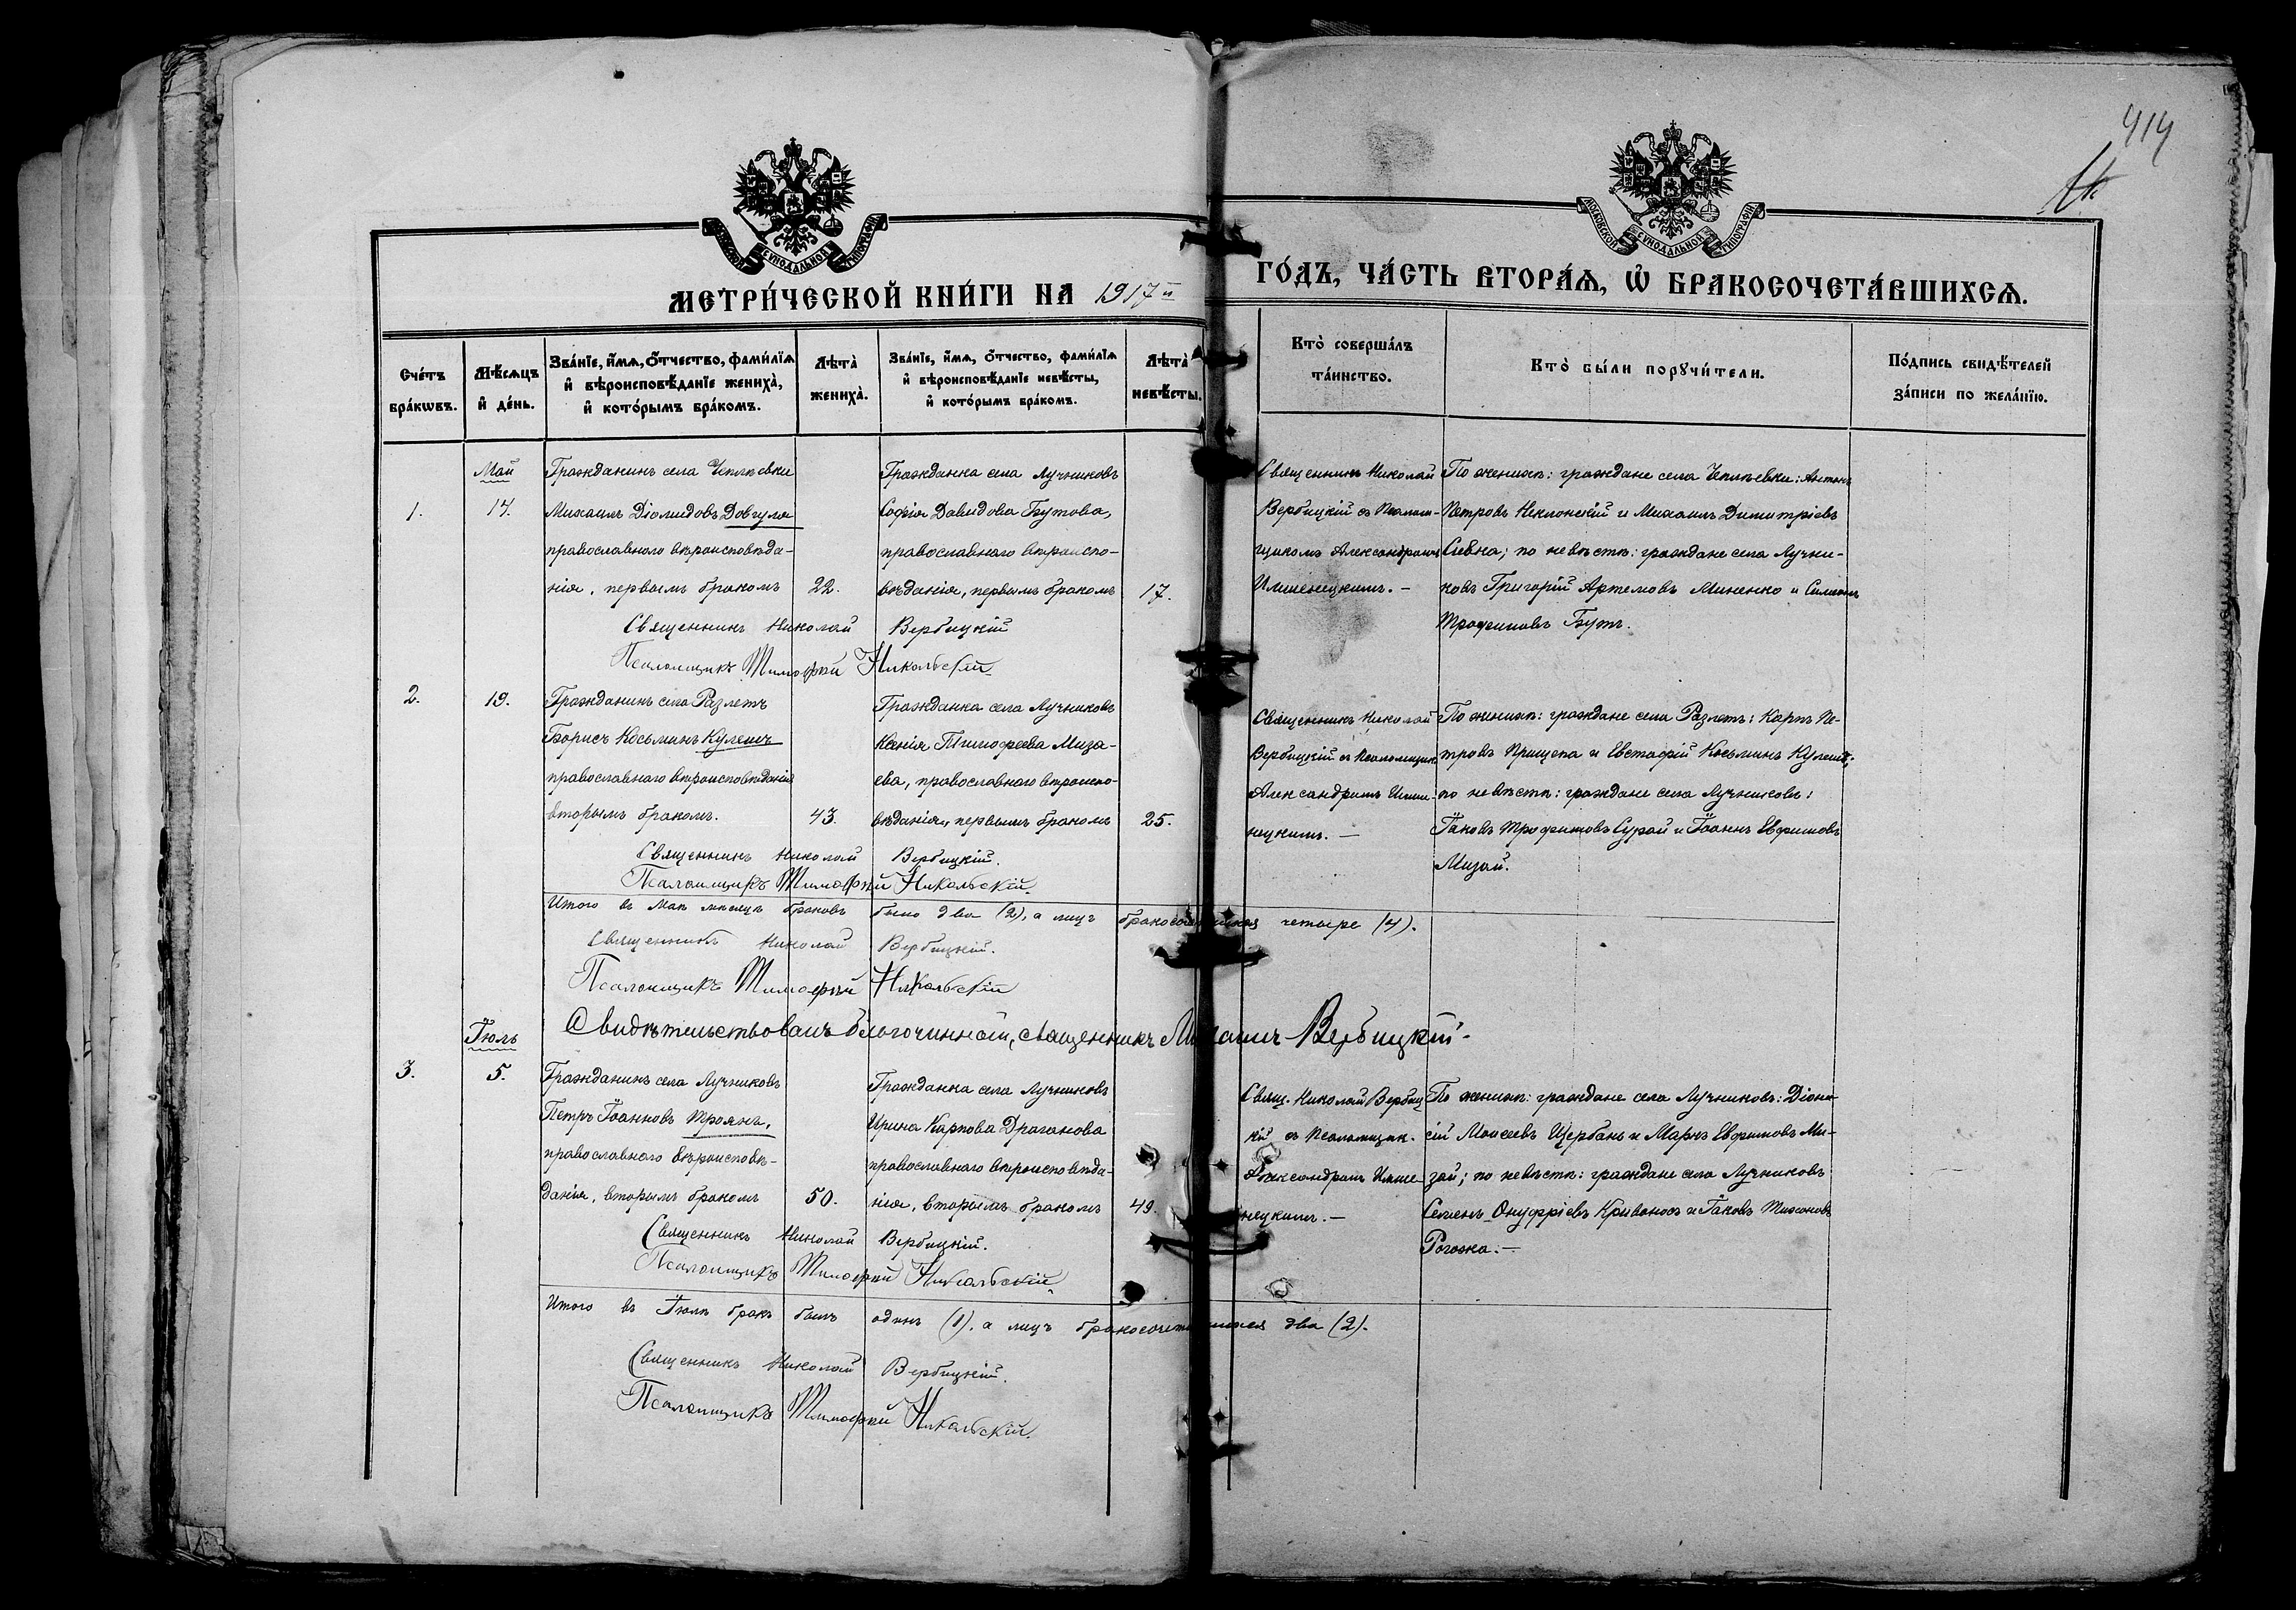 414
МОСКОВСКОЙ СУНОДАЛЬНОЙ ТИПОГРАФІИ
МОСКОВСКОЙ СУНОДАЛЬНОЙ ТИПОГРАФІИ
МЕТРИ́ЧЕСКОЙ КНИ́ГИ НА 1917й ГО́ДЪ, ЧА́СТЬ ВТОРА́Ѧ, Ѽ БРАКОСОЧЕТА́ВШИХСѦ.
Сче́тъ
бра́кѡвъ.
Мѣ́сѧцъ
и҆ де́нь.
Зва́нїе, и҆́мѧ, ѻ҆́тчество, фами́лїѧ
и҆ вѣроисповѣ́данїе жениха̀,
и҆ кото́рымъ бра́комъ.
Лѣ́та
жениха̀.
Зва́нїе, и҆́мѧ, ѻ҆́тчество, фами́лїѧ
и҆ вѣроисповѣ́данїе невѣ́сты,
и҆ кото́рымъ бра́комъ.
Лѣ́та
невѣ́сты.
Кто̀ соверша́лъ
та́инство.
Кто̀ бы́ли порꙋчи́тели.
По́дпись свидѣ́телей
за́писи по жела́нїю.
Май
1.
14.
Гражданинъ села Чепліевки
Михаилъ Діомидовъ Довгуля
православнаго вѣроисповѣда-
нія, первымъ бракомъ
22.
Гражданка села Лучниковъ
Софія Давидова Бутова,
православнаго вѣроиспо-
вѣданія, первымъ бракомъ
17.
Священникъ Николай
Вербицкій съ Псалом-
щикомъ Александромъ
Имшенецкимъ. –
По женихѣ: граждане села Чепліевки: Антонъ
Петровъ Неклонскій и Михаилъ Димитріевъ
по невѣстѣ: граждане села Лучни-
ковъ Григорій Артемовъ Миненко и Симеонъ
Трофимовъ Бутъ.
Священникъ Николай Вербицкій
Псаломщикъ Тимофей Никольскій
2.
19.
Гражданинъ села Разлетъ
Борисъ Косьминъ Кулешъ
православнаго вѣроисповѣданія
вторымъ бракомъ.
43.
Гражданка села Лучниковъ
Ксенія Тимофеева Миза-
ева, православнаго вѣроиспо-
вѣданія, первымъ бракомъ
25.
Священникъ Николай
Вербицкій съ Псаломщик.
Александромъ Имше-
нецкимъ. –
По женихѣ: граждане села Разлетъ: Карпъ Пе-
тровъ Прищепа и Евстафій Косьминъ Кулешъ;
по невѣстѣ: граждане села Лучниковъ:
Іаковъ Трофимовъ Сурай и Іоаннъ Евфимовъ
Мизай.
Священникъ Николай Вербицкій.
Псаломщикъ Тимофей Никольскій.
Итого въ Маѣ мѣсяцѣ браковъ было два (2), а лицъ бракосочетавшихся четыре (4).
Священникъ Николай Вербицкій.
Псаломщикъ Тимофей Никольскій
Свидѣтельствовалъ благочинный, священникъ Михаилъ Вербицкій.
Іюль
3.
5.
Гражданинъ села Лучниковъ
Петръ Іоанновъ Троянъ,
православнаго вѣроисповѣ-
данія, вторымъ бракомъ
50.
Гражданка села Лучниковъ
Ирина Карпова Драганова
православнаго вѣроисповѣда-
нія, вторымъ бракомъ
49.
Свящ. Николай Вербиц-
кій съ Псаломщик.
Александромъ Имше-
нецкимъ. –
По женихѣ: граждане села Лучниковъ: Діони-
сій Моисеевъ Щербань и Маркъ Евфимовъ Ми-
зай; по невѣстѣ: граждане села Лучниковъ
Семенъ Онуфріевъ Кривоносъ и Іаковъ Тихоновъ
Рогожа. –
Священникъ Николай Вербицкій.
Псаломщикъ Тимофей Никольскій.
Итого въ Іюлѣ бракъ былъ одинъ (1), а лицъ бракосочетавшихся два (2).
Священникъ Николай Вербицкій.
Псаломщикъ Тимофей Никольскій.